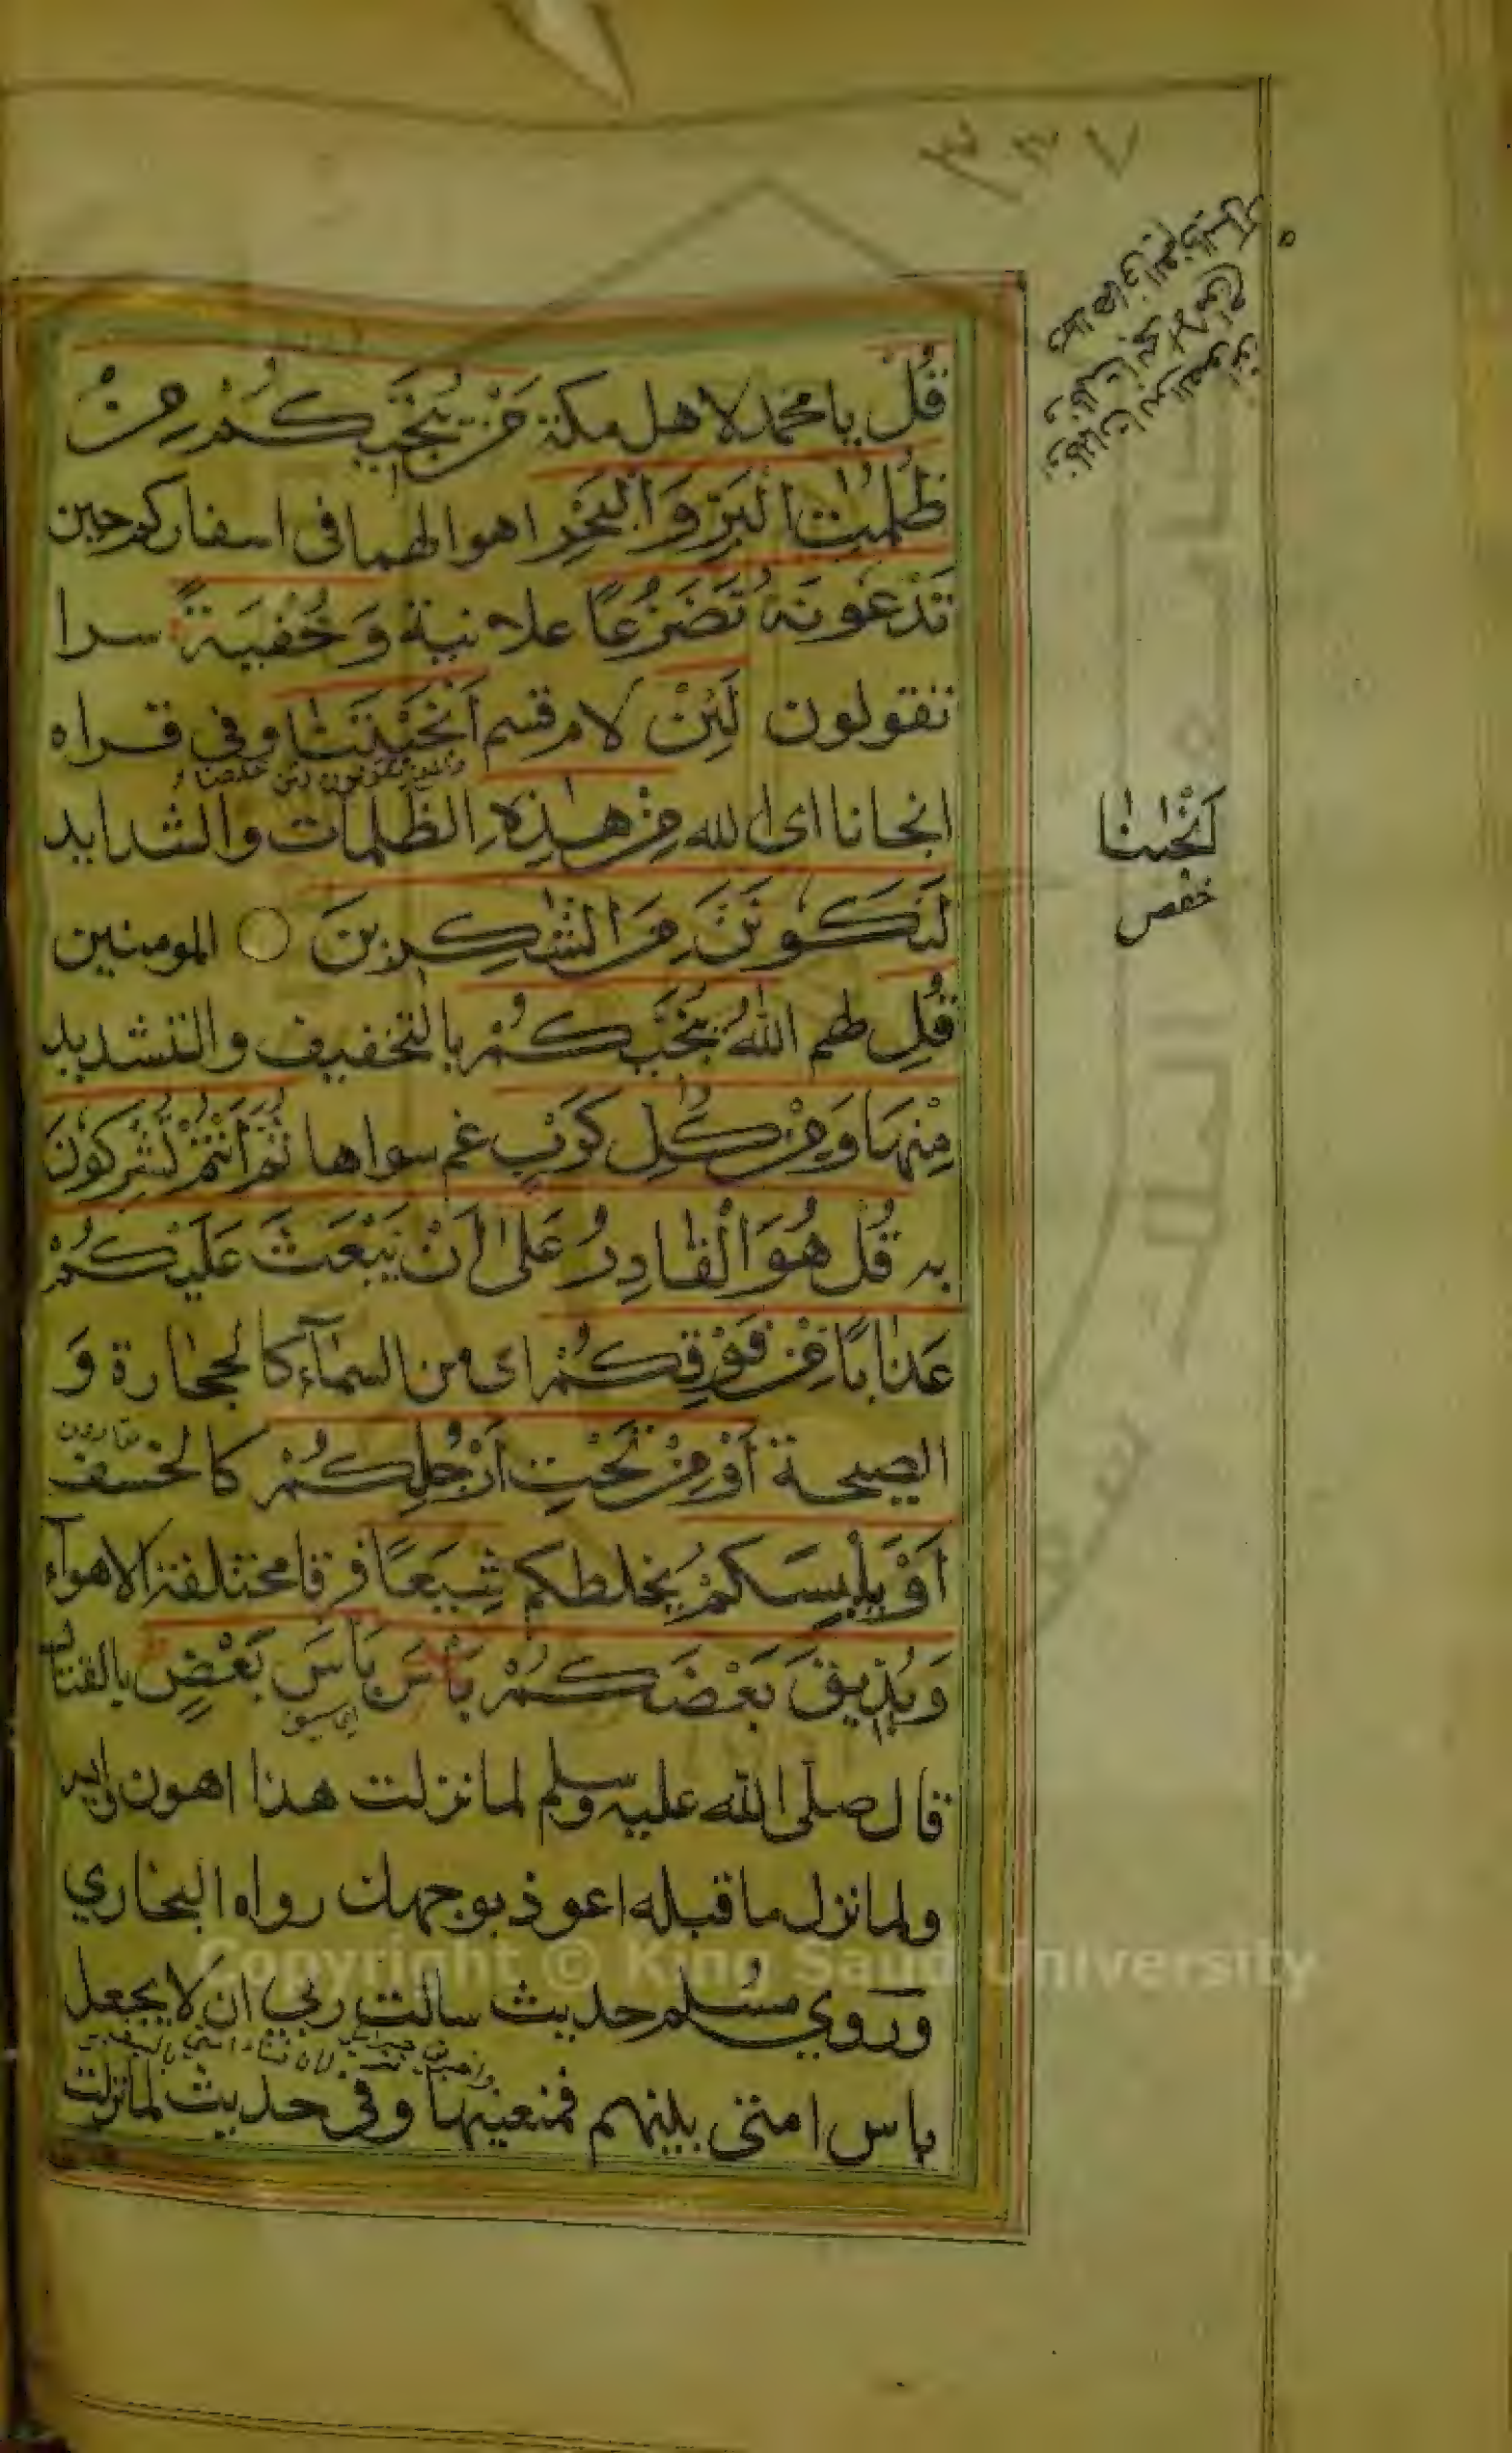 قُلْ يا محمد لاهل مكة مَنْ يُنَجِّيكُمْ مِنْ
ظُلُمٰتِ الْبَرِّ وَالْبَحْرِ اهوالهما في اسفاركم حين
تَدْعُونَهُ تَضَرُّعًا علانية وَخُفْيَةً سرا
تقولون لَئِنْ لام قسم اَنْجَيْتَنَا وفي قراه
انجانا اى الله مِنْ هٰذِهِ الظلمات والشدايد
لَنَكُونَنَّ مِنَ الشّٰكِرِينَ المومنين
قُلِ لهم اللّٰهُ يُنَجِّيكُمْ بالتخفيف والتشديد
مِنْهَا وَمِنْ كُلِّ كَرْبٍ غم سواها ثُمَّ اَنْتُمْ تُشْرِكُونَ
به قُلْ هُوَ الْقَادِرُ عَلٰى اَنْ يَبْعَثَ عَلَيْكُمْ
عَذَابًا مِنْ فَوْقِكُمْ اى من السمآء كالحجارة وَ
الصيحة اَوْ مِنْ تَحْتِ اَرْجُلِكُمْ كالخسف
اَوْ يَلْبِسَكُمْ يخلطكم شِيَعًا فرقا مختلفة الاهوآء
وَيُذِيقَ بَعْضَكُمْ بَاْسَ بَاسَ بَعْضٍ بالقتال
قال صلى الله عليه وسلم لما نزلت هذا اهون وايسر
ولما نزل ما قبله اعوذ بوجهك رواه البخاري
وروي مسلم حديث سالت ربي ان لا يجعل
باس امتى بينهم فمنعينها وفى حديث لما نزلت
اَنْجٰىنا
حفص
Copyright © King Saud University